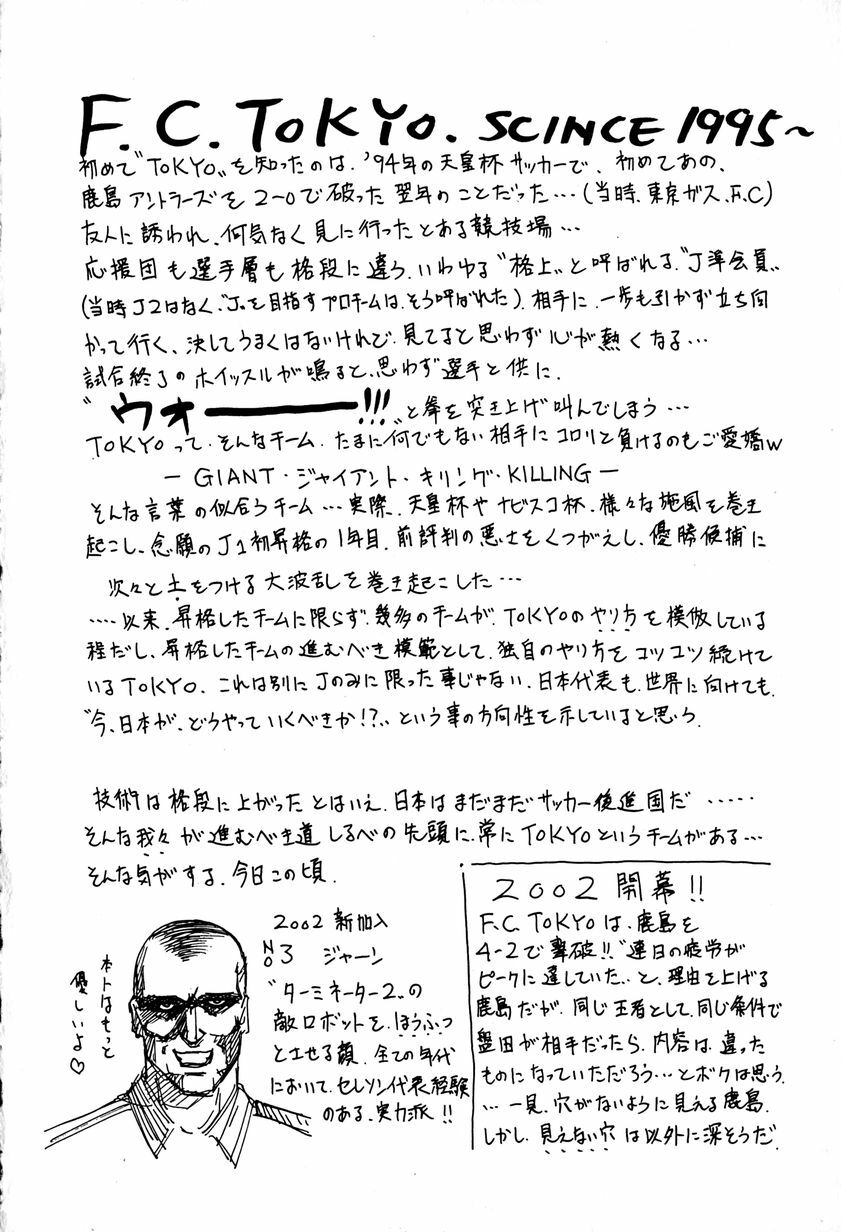 F.C.TOKYO. SCINCE 1995~
初めて"TOKYO"を知ったのは、'94年の天皇杯サッカーで、初めてあの、
鹿島アントラーズを2-0で破った翌年のことだった…(当時、東京ガス、F.C)
友人に誘われ、何気なく見に行ったとある競技場…
応援団も選手層も格段に違う、いわゆる"格上"と呼ばれる"J準会員"
(当時J2はなく、"J"を目指すプロチームは、そう呼ばれた)、相手に、一歩も引かず立ち向
かって行く、決してうまくはないけれど、見てると思わず心が熱くなる…
試合終了のホイッスルが鳴ると、思わず選手と供に、
"ウオーーー!!!"と拳を突き上げ叫んでしまう…
TOKYOって、そんなチーム、たまに何でもない相手にコロリと負けるのもご愛嬌w
－GIANT・ジャイアント・キリング・KILLING－
そんな言葉の似合うチーム…実際、天皇杯やナビスコ杯、様々な旋風を巻き
起こし、念願のJ1初昇格の1年目、前評判の悪さをくつがえし、優勝候補に
次々と土をつける大波乱を巻き起こした…
‥‥以来、昇格したチームに限らず、幾多のチームが、TOKYOのやり方を模倣している
程だし、昇格したチームの進むべき模範として、独自のやり方をコツコツ続けて
いるTOKYO、これは別にJのみに限った事じゃない、日本代表も、世界に向けても、
"今、日本が、どうやっていくべきか!?"という事の方向性を示していると思う、
技術は格段に上がったとはいえ、日本はまだまだサッカー後進国だ‥‥‥
そんな我々が進むべき道しるべの先頭に、常にTOKYOというチームがある…
そんな気がする、今日この頃、
2002 新加入
NO3 ジャーン
"ターミネーター2"の
敵ロボットを、ほうふつ
とさせる顔、全ての年代
において、セレソン代表経験
のある、実力派!!
ホントはもっと
優しいよ♡
2002 開幕!!
F.C.TOKYOは、鹿島を
4-2で撃破!!"連日の疲労が
ピークに達していた"と、理由を上げる
鹿島だが、同じ王者として、同じ条件で
磐田が相手だったら、内容は、違った
ものになっていただろう…とボクは思う、
…一見、穴がないように見える鹿島、
しかし、見えない穴は以外に深そうだ、